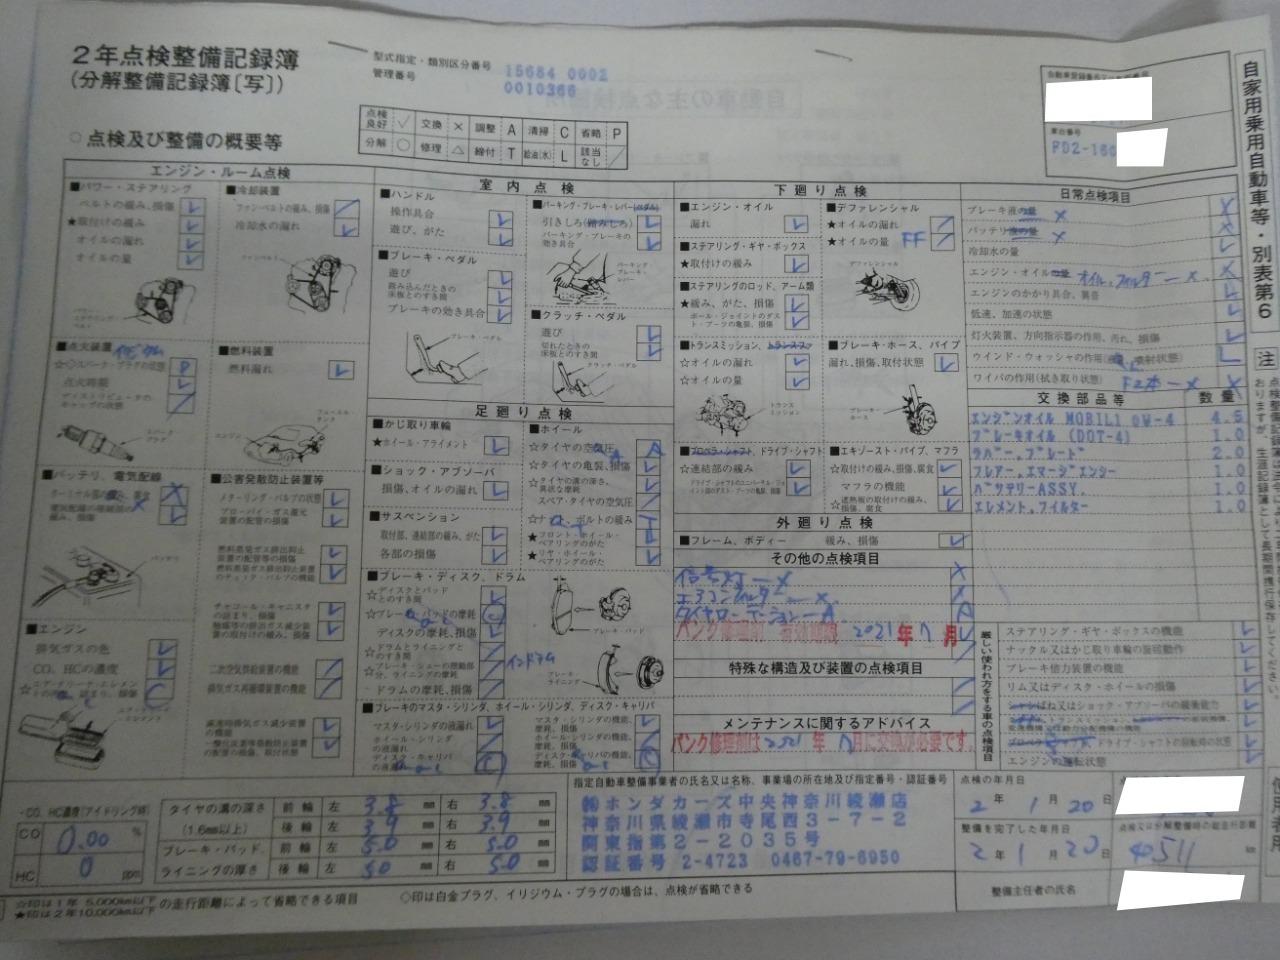 2年点検整備記録簿
(分解整備記録簿〔写〕)
型式指定・類別区分番号 15684 0002
管理番号 0010366
車台番号
FD2-160
自家用乗用自動車等・別表第6
○点検及び整備の概要等
点検良好 ✓ 交換 × 調整 A 清掃 C 省略 P
分解 ○ 修理 △ 締付 T 給油(水) L 該当なし ／
エンジン・ルーム点検
■パワー・ステアリング
ベルトの緩み、損傷
★取付けの緩み
オイルの漏れ
オイルの量
■冷却装置
ファンベルトの緩み、損傷
冷却水の漏れ
■点火装置
☆◇スパーク・プラグの状態 P
点火時期
ディストリビュータのキャップの状態
■燃料装置
燃料漏れ
■バッテリ、電気配線
■公害発散防止装置等
メターリング・バルブの状態
ブローバイ・ガス還元装置の配管の損傷
燃料蒸発ガス排出抑止装置の配管等の損傷
燃料蒸発ガス排出抑止装置のチェック・バルブの機能
チャコール・キャニスタの詰まり、損傷
触媒等の排出ガス減少装置の取付けの緩み、損傷
二次空気供給装置の機能
排気ガス再循環装置の機能
減速時排気ガス減少装置の機能
一酸化炭素等発散防止装置の配管の損傷、取付状態
■エンジン
排気ガスの色
CO、HCの濃度
室内点検
■ハンドル
操作具合
遊び、がた
■ブレーキ・ペダル
遊び
踏み込んだときの床板とのすき間
ブレーキの効き具合
■パーキング・ブレーキ・レバー(ペダル)
引きしろ(踏みしろ)
パーキング・ブレーキの効き具合
■クラッチ・ペダル
遊び
切れたときの床板とのすき間
足廻り点検
■かじ取り車輪
★ホイール・アライメント
■ショック・アブソーバ
損傷、オイルの漏れ
■サスペンション
取付部、連結部の緩み、がた
各部の損傷
■ホイール
☆タイヤの空気圧 A
☆タイヤの亀裂、損傷
☆タイヤの溝の深さ、異状な摩耗
スペア・タイヤの空気圧
☆ナット、ボルトの緩み T
★フロント・ホイール・ベアリングのがた
★リヤ・ホイール・ベアリングのがた
■ブレーキ・ディスク、ドラム
☆ディスクとパッドとのすき間
☆ブレーキ・パッドの摩耗
ディスクの摩耗、損傷
☆ドラムとライニングとのすき間
☆ブレーキ・シューの摺動部分、ライニングの摩耗
ドラムの摩耗、損傷
インドラム
■ブレーキのマスタ・シリンダ、ホイール・シリンダ、ディスク・キャリパ
マスタ・シリンダの液漏れ
ホイール・シリンダの液漏れ
ディスク・キャリパの液漏れ
マスタ・シリンダの機能、摩耗、損傷
ホイール・シリンダの機能、摩耗、損傷
ディスク・キャリパの機能、摩耗、損傷
下廻り点検
■エンジン・オイル
漏れ
■ステアリング・ギヤ・ボックス
★取付けの緩み
■ステアリングのロッド、アーム類
★緩み、がた、損傷
ボール・ジョイントのダスト・ブーツの亀裂、損傷
■トランスミッション、トランスファ
☆オイルの漏れ
☆オイルの量
■デファレンシャル
★オイルの漏れ
★オイルの量 FF
■ブレーキ・ホース、パイプ
漏れ、損傷、取付状態
■プロペラ・シャフト、ドライブ・シャフト
☆連結部の緩み
ドライブ・シャフトのユニバーサル・ジョイント部のダスト・ブーツの亀裂、損傷
■エキゾースト・パイプ、マフラ
☆取付けの緩み、損傷、腐食
マフラの機能
☆遮熱板の取付けの緩み、損傷、腐食
外廻り点検
■フレーム、ボディー 緩み、損傷
その他の点検項目
信号灯―×
エアコンフィルター―×
タイヤローテーション―A
パンク修理剤 有効期限 2021年7月
特殊な構造及び装置の点検項目
メンテナンスに関するアドバイス
パンク修理剤は2021年7月に交換が必要です。
日常点検項目
ブレーキ液の量 ×
バッテリ液の量 ×
冷却水の量
エンジン・オイルの量 オイル,フィルター―×
エンジンのかかり具合、異音
低速、加速の状態
灯火装置、方向指示器の作用、汚れ、損傷
ウインド・ウォッシャの作用(液量、噴射状態)
ワイパの作用(拭き取り状態) F2本―×
交換部品等 数量
エンジンオイル MOBIL1 0W-4 4.5
ブレーキオイル (DOT-4) 1.0
ラバー,ブレード 2.0
フレアー,エマージエンシー 1.0
バッテリーASSY. 1.0
エレメント,フィルター 1.0
厳しい使われ方をする車の点検項目
ステアリング・ギヤ・ボックスの機能
ナックル又はかじ取り車輪の旋回動作
ブレーキ倍力装置の機能
リム又はディスク・ホイールの損傷
プロペラ・シャフト、ドライブ・シャフトの回転時の状態
エンジンの運転状態
・CO、HC濃度(アイドリング時)
CO 0.00 %
HC 0 ppm
タイヤの溝の深さ(1.6㎜以上) 前輪 左 3.8 ㎜ 右 3.8 ㎜
後輪 左 3.9 ㎜ 右 3.9 ㎜
ブレーキ・パッド、ライニングの厚さ 前輪 左 5.0 ㎜ 右 5.0 ㎜
後輪 左 5.0 右 5.0 ㎜
指定自動車整備事業者の氏名又は名称、事業場の所在地及び指定番号・認証番号
㈱ホンダカーズ中央神奈川綾瀬店
神奈川県綾瀬市寺尾西3-7-2
関東指第2-2035号
認証番号 2-4723 0467-79-6950
点検の年月日
2年1月20日
整備を完了した年月日
2年1月20日
点検又は分解整備時の総走行距離
40511 km
整備主任者の氏名
☆印は1年 5,000km以下
★印は2年10,000km以下 の走行距離によって省略できる項目
◇印は白金プラグ、イリジウム・プラグの場合は、点検が省略できる